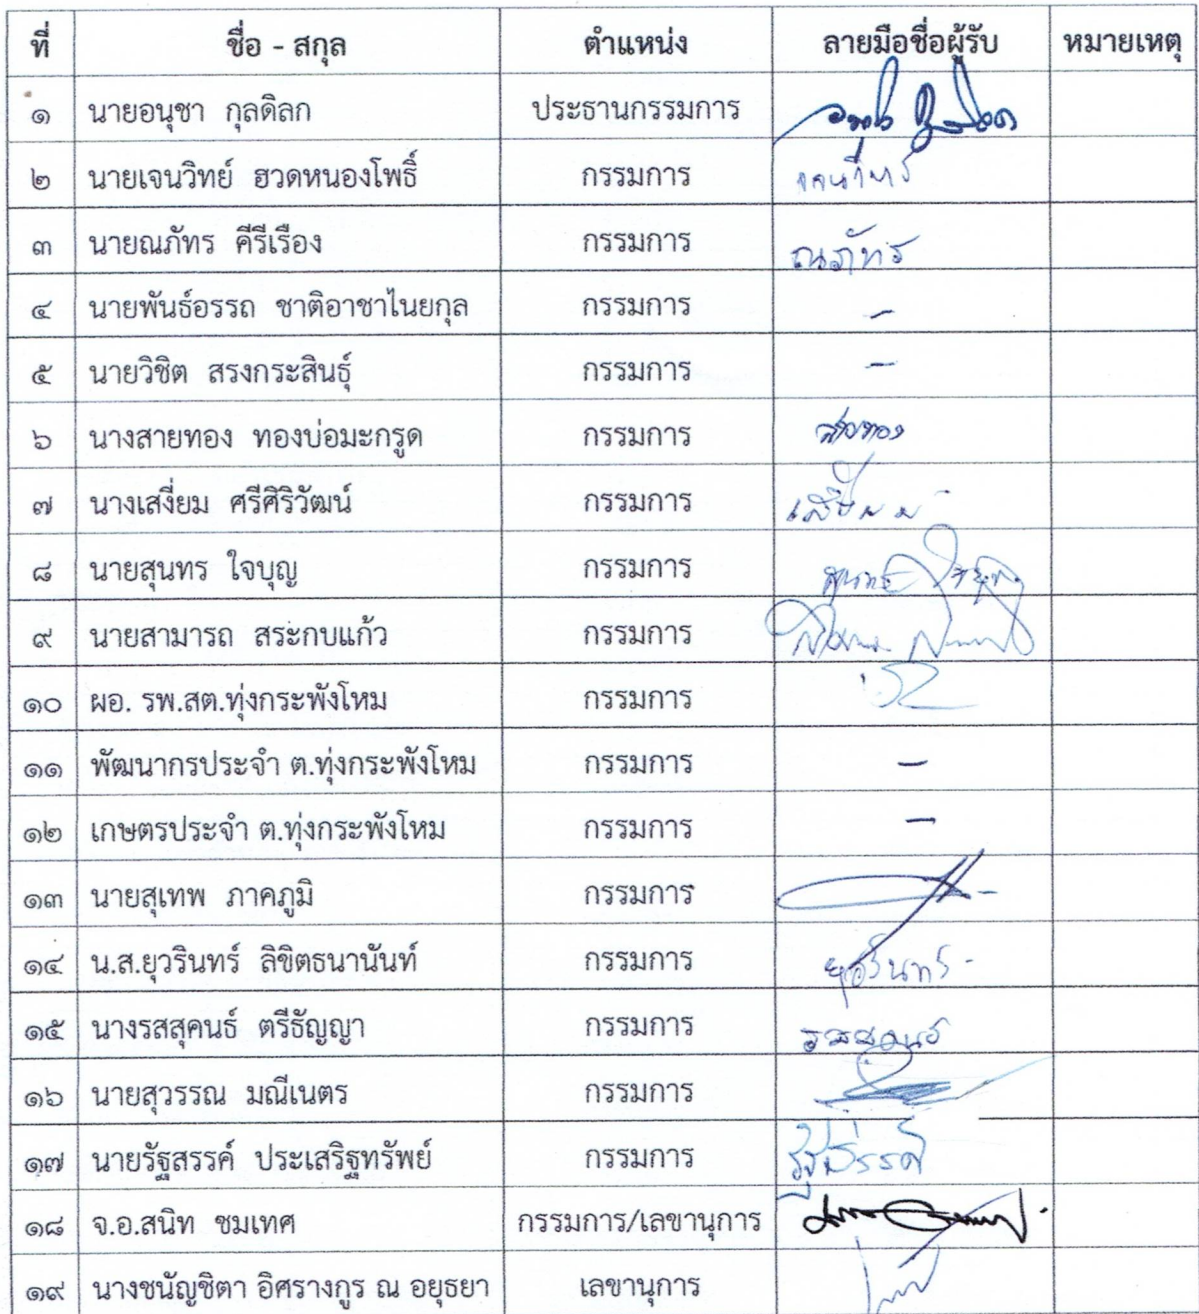 ที่ ชื่อ - สกุล ตำแหน่ง ลายมือชื่อผู้รับ หมายเหตุ
๑ นายอนุชา กุลดิลก ประธานกรรมการ
๒ นายเจนวิทย์ ฮวดหนองโพธิ์ กรรมการ เจนวิทย์
๓ นายณภัทร คีรีเรือง กรรมการ ณภัทร
๔ นายพันธ์อรรถ ชาติอาชาไนยกุล กรรมการ -
๕ นายวิชิต สรงกระสินธุ์ กรรมการ -
๖ นางสายทอง ทองบ่อมะกรูด กรรมการ สายทอง
๗ นางเสงี่ยม ศรีศิริวัฒน์ กรรมการ เสงี่ยม
๘ นายสุนทร ใจบุญ กรรมการ สุนทร ใจบุญ
๙ นายสามารถ สระกบแก้ว กรรมการ
๑๐ ผอ. รพ.สต.ทุ่งกระพังโหม กรรมการ
๑๑ พัฒนากรประจำ ต.ทุ่งกระพังโหม กรรมการ -
๑๒ เกษตรประจำ ต.ทุ่งกระพังโหม กรรมการ -
๑๓ นายสุเทพ ภาคภูมิ กรรมการ
๑๔ น.ส.ยุวรินทร์ ลิขิตธนานันท์ กรรมการ ยุวรินทร์
๑๕ นางรสสุคนธ์ ตรีธัญญา กรรมการ รสสุคนธ์
๑๖ นายสุวรรณ มณีเนตร กรรมการ
๑๗ นายรัฐสรรค์ ประเสริฐทรัพย์ กรรมการ รัฐสรรค์
๑๘ จ.อ.สนิท ชมเทศ กรรมการ/เลขานุการ
๑๙ นางชนัญชิตา อิศรางกูร ณ อยุธยา เลขานุการ